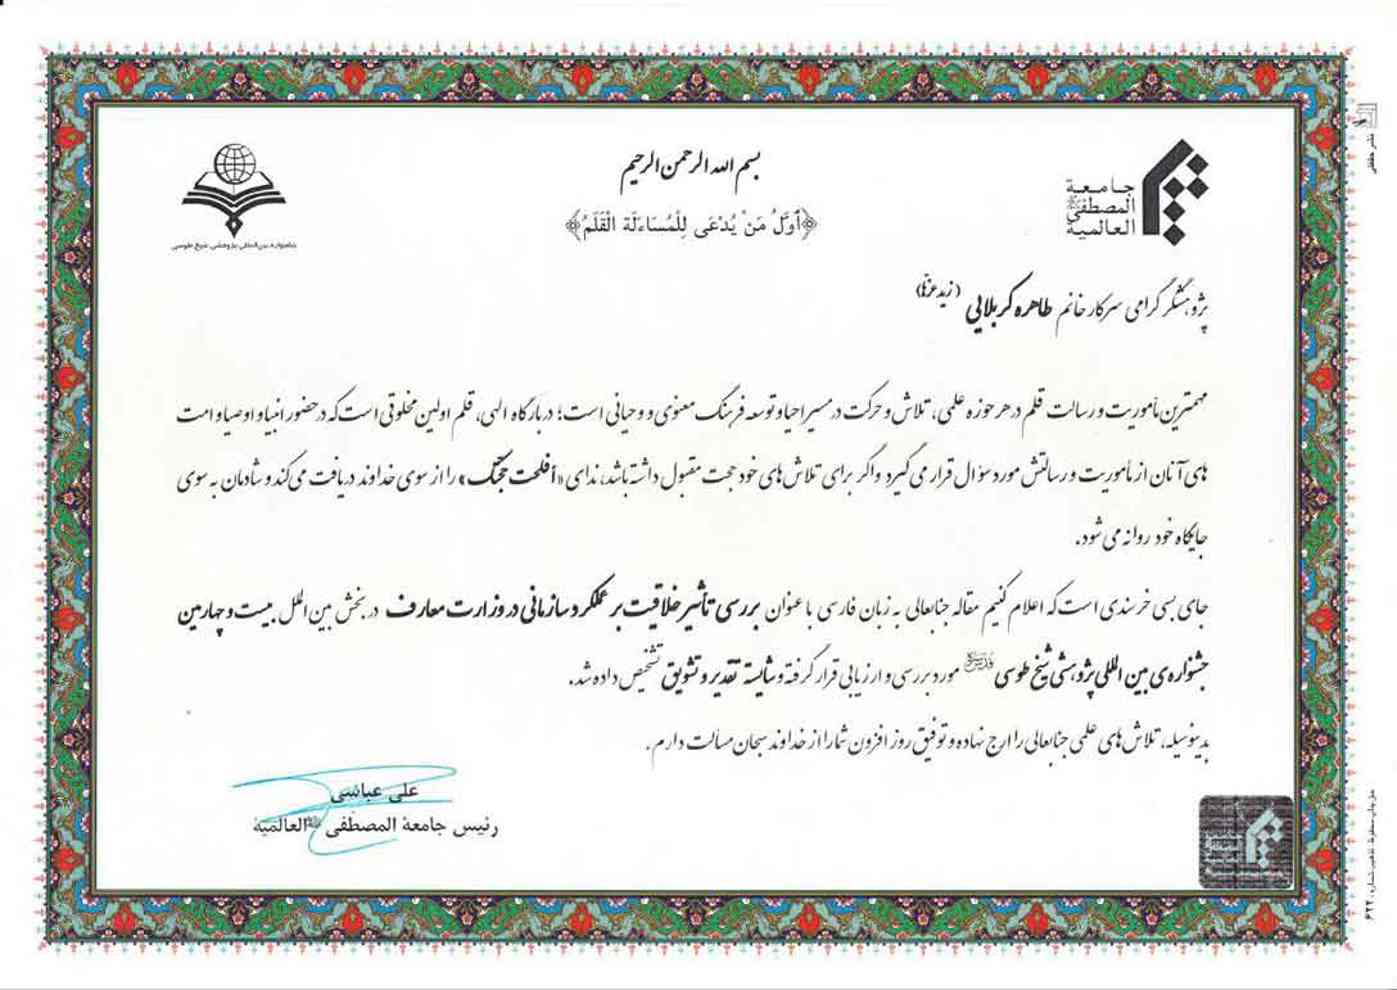 بسم الله الرحمن الرحیم
﴿أَوَّلُ مَنْ يُدْعَى لِلْمُسَاءَلَة الْقَلَمُ﴾
جامعة
المصطفی
العالمیة
جشنواره بین‌المللی پژوهشی شیخ طوسی
پژوهشگر گرامی سرکار خانم طاهره کربلایی (زید عزها)
مهمترین مأموریت و رسالت قلم در هر حوزه علمی، تلاش و حرکت در مسیر احیا و توسعه فرهنگ معنوی و وحیانی است؛ در بارگاه الهی، قلم اولین مخلوقی است که در حضور انبیا و اوصیا و امت
های آنان از مأموریت و رسالتش مورد سؤال قرار می گیرد و اگر برای تلاش های خود حجت مقبول داشته باشد، ندای «أفلحت حجتک» را از سوی خداوند دریافت می کند و شادمان به سوی
جایگاه خود روانه می شود.
جای بسی خرسندی است که اعلام کنیم مقاله جنابعالی به زبان فارسی با عنوان بررسی تأثیر خلاقیت بر عملکرد سازمانی در وزارت معارف در بخش بین الملل بیست و چهارمین
جشنواره‌ی بین المللی پژوهشی شیخ طوسی مورد بررسی و ارزیابی قرار گرفته و شایسته تقدیر و تشویق تشخیص داده شد.
بدینوسیله، تلاش های علمی جنابعالی را ارج نهاده و توفیق روز افزون شما را از خداوند سبحان مسألت دارم.
علی عباسی
رئیس جامعة المصطفی العالمیة